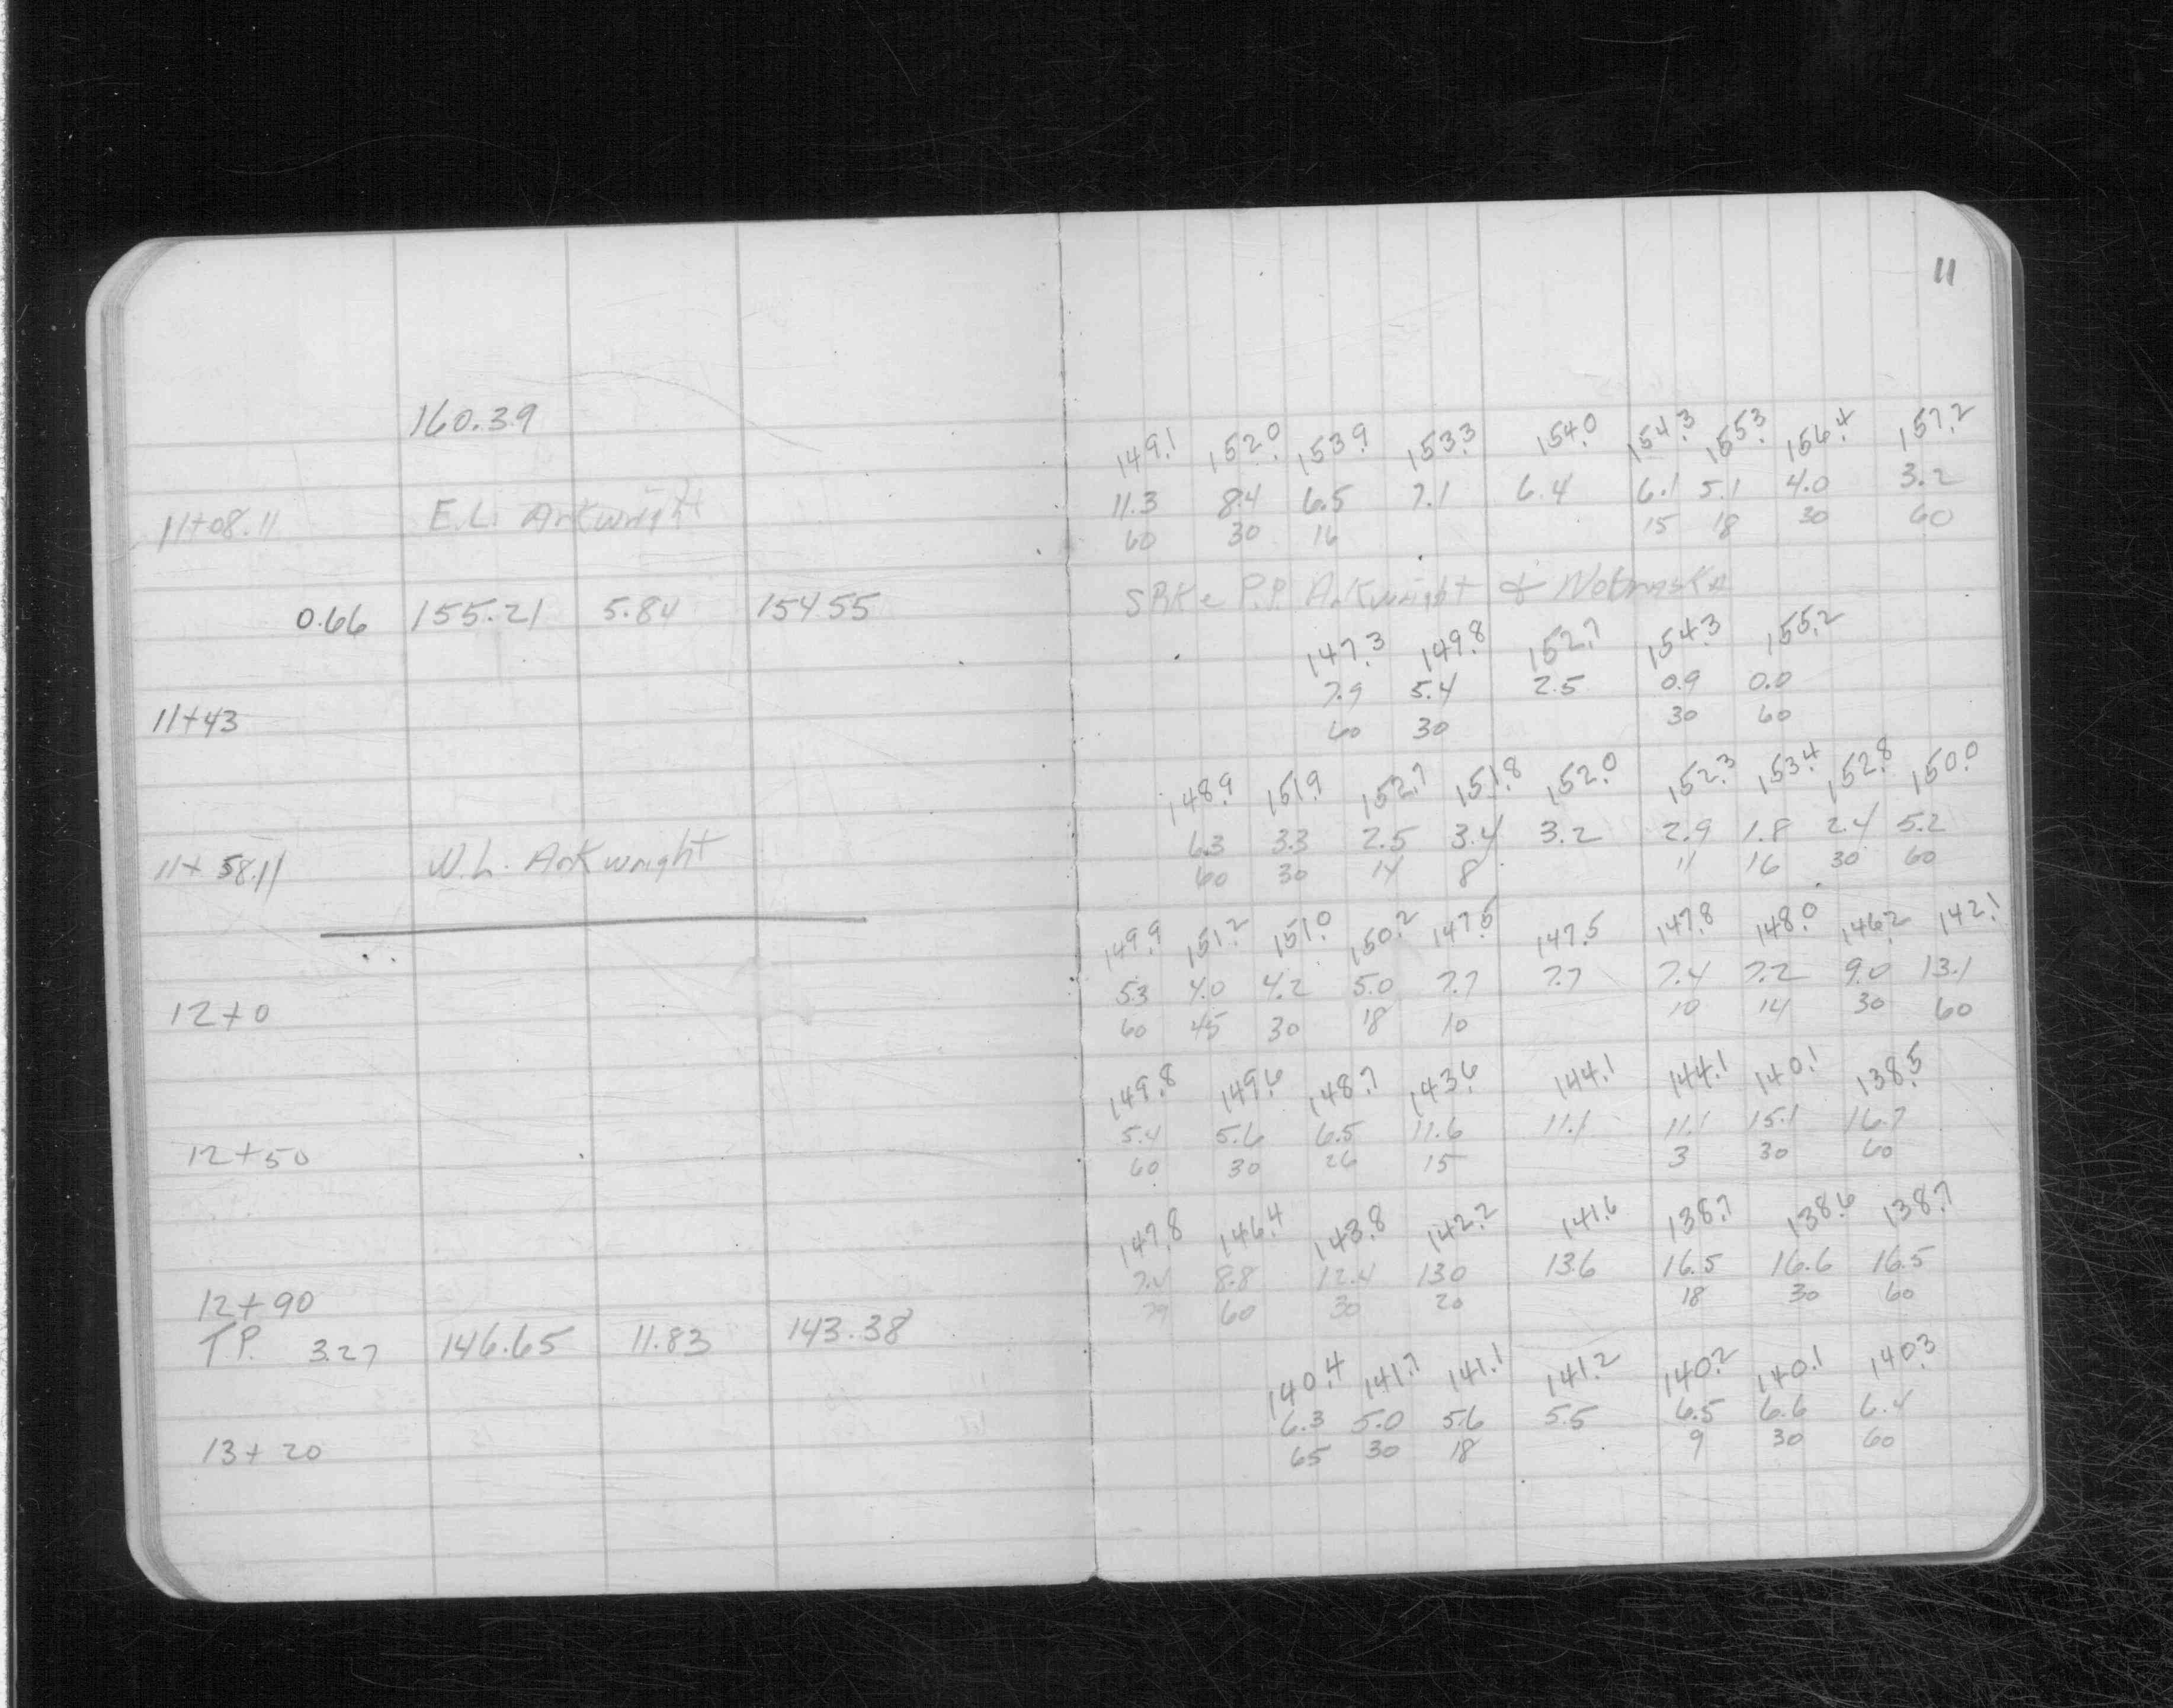 11
160.39
149.1 152.0 153.9 153.3 154.0 154.3 155.3 156.4 157.2
11.3 8.4 6.5 7.1 6.4 6.1 5.1 4.0 3.2
11+08.11 E.L. Arkwright
60 30 16 15 18 30 60
SPK e P.P. Arkwright & Nebraska
0.66 155.21 5.84 154.55
147.3 149.8 152.7 154.3 155.2
7.9 5.4 2.5 0.9 0.0
11+43
60 30 30 60
148.9 151.9 152.7 151.8 152.0 152.3 153.4 152.8 150.0
6.3 3.3 2.5 3.4 3.2 2.9 1.8 2.4 5.2
11+58.11 W.L. Arkwright
60 30 14 8 11 16 30 60
149.9 151.2 151.0 150.2 147.5 147.5 147.8 148.0 146.2 142.1
5.3 4.0 4.2 5.0 7.7 7.7 7.4 7.2 9.0 13.1
12+0
60 45 30 18 10 10 14 30 60
149.8 149.6 148.7 143.6 144.1 144.1 140.1 138.5
5.4 5.6 6.5 11.6 11.1 11.1 15.1 16.7
12+50
60 30 26 15 3 30 60
147.8 146.4 143.8 142.2 141.6 138.7 138.6 138.7
7.4 8.8 12.4 13.0 13.6 16.5 16.6 16.5
12+90
60 30 20 18 30 60
T.P. 3.27 146.65 11.83 143.38
140.4 141.7 141.1 141.2 140.2 140.1 140.3
6.3 5.0 5.6 5.5 6.5 6.6 6.4
13+20
65 30 18 9 30 60